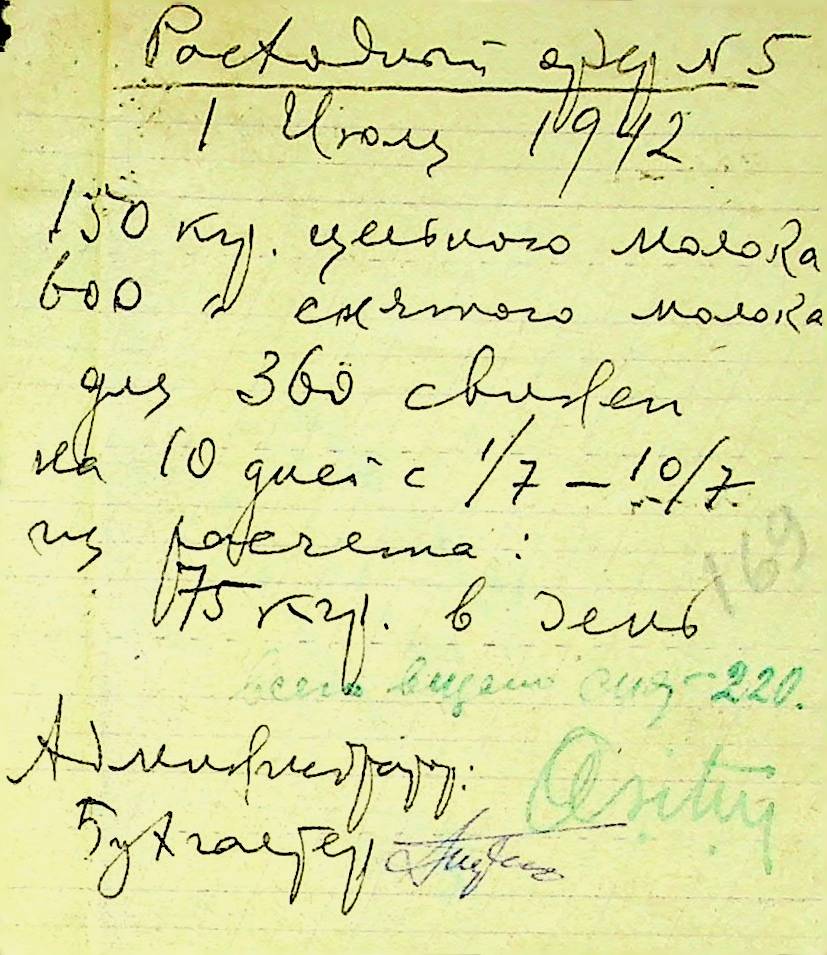 Расходный ордер N 5
1 Июля 1942
150 кгр. цельного молока
600 " снятого молока
для 360 свиней
на 10 дней с 1/7 – 10/7
из расчета:
75 кгр. в день
169
всего выдано снят-220.
Администратор:
Бухгалтер